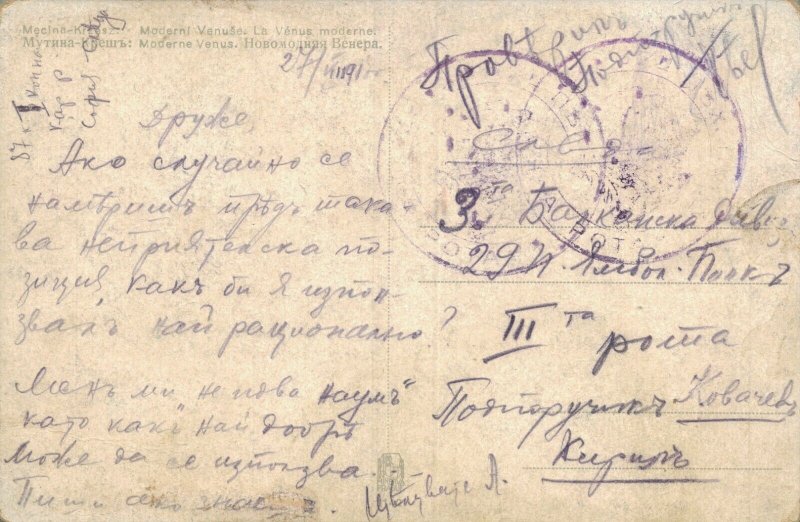 Moderní Venuše. La Vénus moderne.
Moderne Venus. Новомодняя Венера.
27/
София
Друже,
Ако случайно се
намѣришъ прѣдъ така-
ва неприятелска по-
зиция, какъ би я изпол-
звалъ най рационално?
Менъ ми не идва наумъ
като какъ най добрѣ
може да се използва.
Пиши ако знаешъ.
Провѣрилъ
Подпоручикъ
3та Балканска Диви
29й Ямбол. Полкъ
IIIта рота
Подпоручикъ Ковачевъ
Кирилъ
РОТА